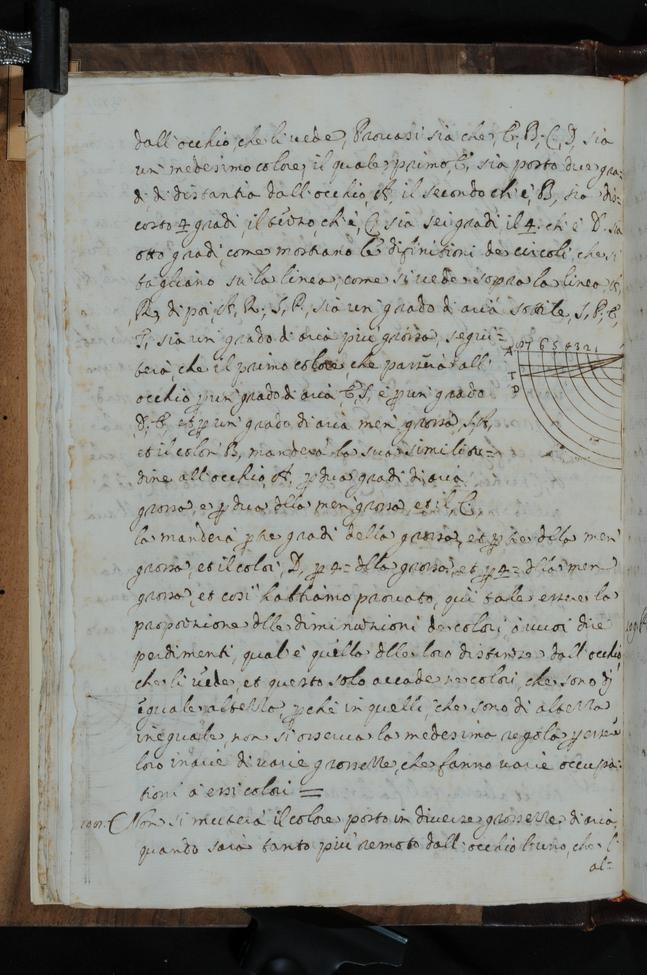 dall'occhio, che li vede, Provasi sia che, E, B, C, D, sia
un medesimo colore, il quale primo, E, sia posto due gra=
di, di distantia dall'occhio, A, il secondo ch'è, B, sia dis=
costo 4 gradi, il terzo, ch'è, C, sia sei gradi, il 4. ch'è D. sia
otto gradi, come mostrano le difinitioni de circoli, che si
tagliano su la linea, come si vede sopra la linea, A,
R, di poi A, R, S, P, sia un grado di aria sottile, S, P, E,
T, sia un grado di aria più grossa, segui=
terà che il primo colore, che passerà all'
occhio p un grado di aria E, S, e p un grado
S, A, et p un grado di aria men' grossa, S, A,
et il color B, manderà la sua similitu=
dine all'occhio, A, p dua gradi di aria
grossa, e p dua dlla men grossa, et il, C,
la manderà p tre gradi della grossa, et p tre dlla men
grossa, et il color, D, p 4= dlla grossa, et p 4= dlla men
grossa, et così habbiamo provato, qui tale essere la
proporzione dlle diminuzioni de colori, ò vuoi dire
perdimenti, qual'è quella dlle loro distanze dall'occhio,
che li vede, et questo solo accade ne colori, che sono di
eguale altezza, pche in quelli, che sono di altezza
ineguale, non si osserva la medesima regola p esser
loro in arie di varie grossezze, che fanno varie occupa=
tioni à essi colori =
Non si muterà il colore posto in diverse grossezze di aria,
quando sarà tanto più remoto dall'occhio l'uno, che l'
al=
A 8 7 6 5 4 3 2 1